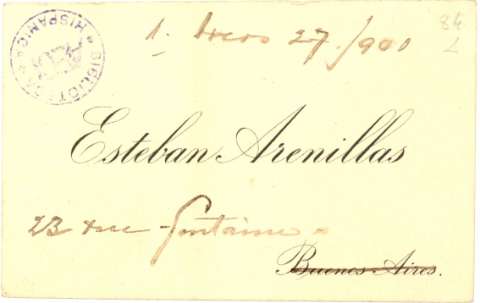 BIBLIOTECA HISPANICA
27/900
84
Esteban Arenillas
23 rue Fontaine
Buenos-Aires.